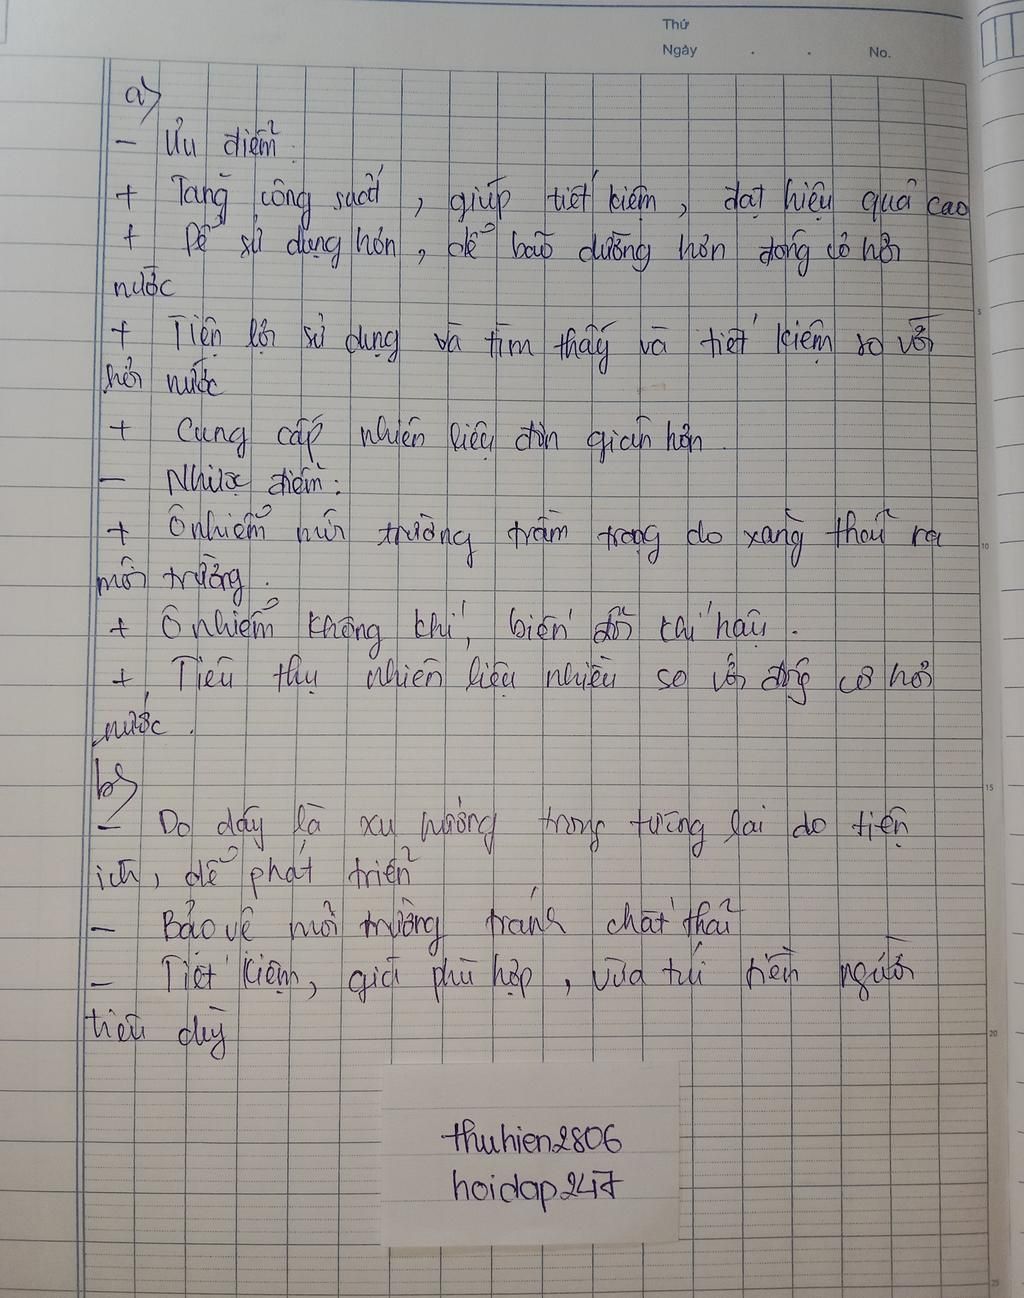 Thứ
Ngày . . No.
a)
- Ưu điểm:
+ Tăng công suất, giúp tiết kiệm, đạt hiệu quả cao
+ Dễ sử dụng hơn, dễ bảo dưỡng hơn động cơ hơi
nước
+ Tiện lợi sử dụng và tìm thấy và tiết kiệm so với
hơi nước
+ Cung cấp nhiên liệu đơn giản hơn.
- Nhược điểm:
+ Ô nhiễm môi trường trầm trọng do xăng thải ra
môi trường.
+ Ô nhiễm không khí, biến đổi khí hậu.
+ Tiêu thụ nhiên liệu nhiều so với động cơ hơi
nước.
b)
- Do đây là xu hướng trong tương lai do tiện
ích, dễ phát triển
- Bảo vệ môi trường tránh chất thải
- Tiết kiệm, giá phù hợp, vừa túi tiền người
tiêu dùng
thuhien2806
hoidap247
5
10
15
20
25